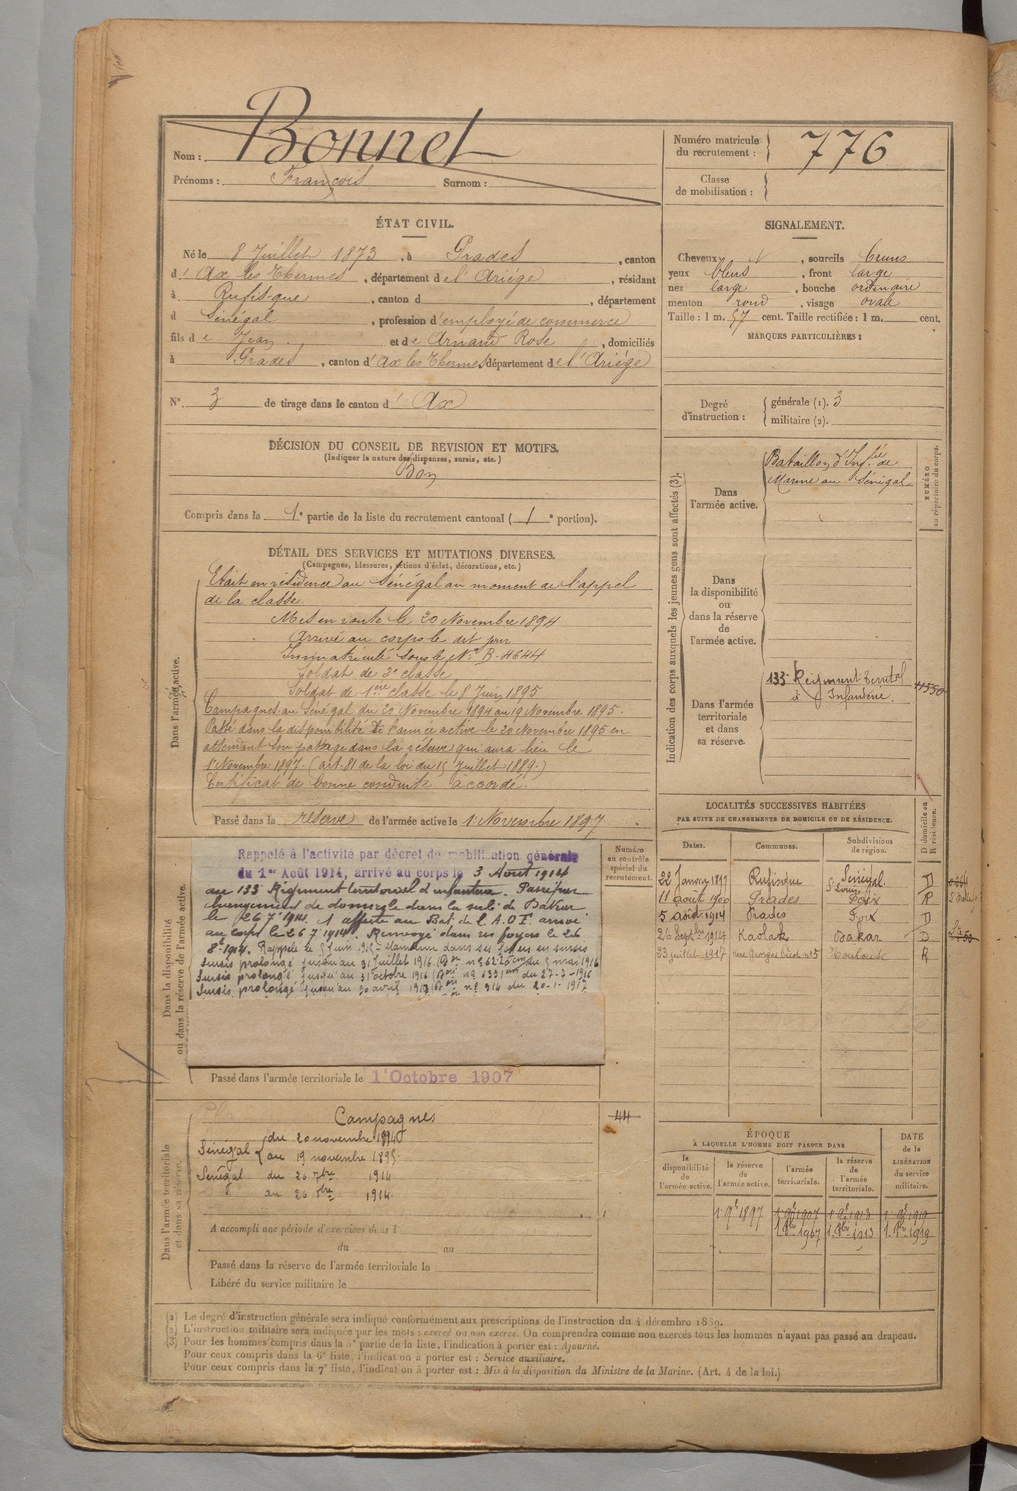 Nom : Bonnet
Prénoms : François Surnom :
Numéro matricule du recrutement : 776
Classe de mobilisation :
ÉTAT CIVIL.
Né le 8 Juillet 1873, à Prades, canton
d' Ax les Thermes, département de l'Ariège, résidant
à Rufisque, canton d , département
d Sénégal, profession d'employé de commerce
fils de Jean et de Arnaud Rose, domiciliés
à Prades, canton d'Ax les Thermes, département de l'Ariège
N° 3 de tirage dans le canton d' Ax
DÉCISION DU CONSEIL DE REVISION ET MOTIFS.
(Indiquer la nature des dispenses, sursis, etc.)
Bon
Compris dans la 1e partie de la liste du recrutement cantonal ( 1 e portion).
DÉTAIL DES SERVICES ET MUTATIONS DIVERSES.
(Campagnes, blessures, actions d'éclat, décorations, etc.)
Dans l'armée active.
Etait en résidence au Sénégal au moment de l'appel
de la classe.
Mis en route le 20 Novembre 1894
Arrivé au corps le dit jour
Immatriculé sous le N° B-4644
Soldat de 2e classe
Soldat de 1ère classe le 8 Juin 1895
Campagnes au Sénégal du 20 Novembre 1894 au 19 Novembre 1895.
Passé dans la disponibilité de l'armée active le 20 Novembre 1895 en
attendant son passage dans la réserve qui aura lieu le
1er Novembre 1897. (art. 81 de la loi du 15 Juillet 1889.)
Certificat de bonne conduite accordé.
Passé dans la réserve de l'armée active le 1 Novembre 1897
Dans la disponibilité ou dans la réserve de l'armée active.
Numéro au contrôle spécial du recrutement.
Rappelé à l'activité par décret de mobilisation générale
du 1er Août 1914, arrivé au corps le 3 Août 1914
au 133 Régiment territorial d'infanterie. Passé par
changement de domicile dans la subd. de Dakar
le 26 7bre 1914. affecté au Bat. de l'A.O.F. arrivé
au corps le 26 7bre 1914. Renvoyé dans ses foyers le 26
8bre 1914. Rappelé le 5 Juin 1915
Sursis prolongé jusqu'au 31 Juillet 1916 du 5 mai 1916
Sursis prolongé jusqu'au 31 octobre 1916 du 27-7-1916
Sursis prolongé jusqu'au 30 avril 1917 n° 914 du 20-1-1917
Passé dans l'armée territoriale le 1er Octobre 1907
Dans l'armée territoriale et dans sa réserve.
Campagnes
44
Sénégal du 20 novembre 1894
au 19 novembre 1895.
Sénégal du 26 7bre 1914
au 26 8bre 1914.
A accompli une période d'exercices dans l
du au
Passé dans la réserve de l'armée territoriale le
Libéré du service militaire le
SIGNALEMENT.
Cheveux , sourcils bruns
yeux bleus, front large
nez large, bouche ordinaire
menton rond, visage ovale
Taille : 1 m. 57 cent. Taille rectifiée : 1 m. cent.
MARQUES PARTICULIÈRES :
Degré d'instruction :
générale (1). 3
militaire (2).
Indication des corps auxquels les jeunes gens sont affectés (3).
NUMÉRO au répertoire du corps.
Dans l'armée active.
Bataillon d'Inf.ie de
Marine au Sénégal
Dans la disponibilité ou dans la réserve de l'armée active.
Dans l'armée territoriale et dans sa réserve.
133e Régiment Territ.al
d'Infanterie.
LOCALITÉS SUCCESSIVES HABITÉES
PAR SUITE DE CHANGEMENTS DE DOMICILE OU DE RÉSIDENCE.
D domicile ou R résidence.
Dates. Communes. Subdivisions de région.
22 Janvier 1897 Rufisque Sénégal St Louis D
11 août 1900 Prades Foix R
5 août 1914 Prades Foix D
26 Septbre 1914 Kaolak Dakar D
23 juillet 1917 rue Georges Bizet n° 5 Toulouse R
ÉPOQUE
À LAQUELLE L'HOMME DOIT PASSER DANS
DATE DE LA LIBÉRATION du service militaire.
la disponibilité de l'armée active.
la réserve de l'armée active.
l'armée territoriale.
la réserve de l'armée territoriale.
1 9e 1897 1 9e 1907 1 9e 1913 1 9e 1919
1. 8bre 1907 1. 8bre 1913 1. 8bre 1919
(1) Le degré d'instruction générale sera indiqué conformément aux prescriptions de l'instruction du 4 décembre 1889.
(2) L'instruction militaire sera indiquée par les mots : exercé ou non exercé. On comprendra comme non exercés tous les hommes n'ayant pas passé au drapeau.
(3) Pour les hommes compris dans la 5e partie de la liste, l'indication à porter est : Ajourné.
Pour ceux compris dans la 6e liste, l'indication à porter est : Service auxiliaire.
Pour ceux compris dans la 7e liste, l'indication à porter est : Mis à la disposition du Ministre de la Marine. (Art. 4 de la loi.)